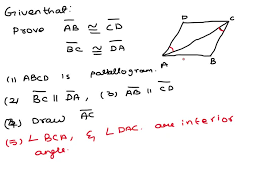 Given that:
Prove AB ≅ CD
BC ≅ DA
D
C
A
B
(1) ABCD is parallogram.
(2) BC || DA, (3) AB || CD
(4) Draw AC
(5) ∠ BCA, & ∠ DAC. are interior
angle.